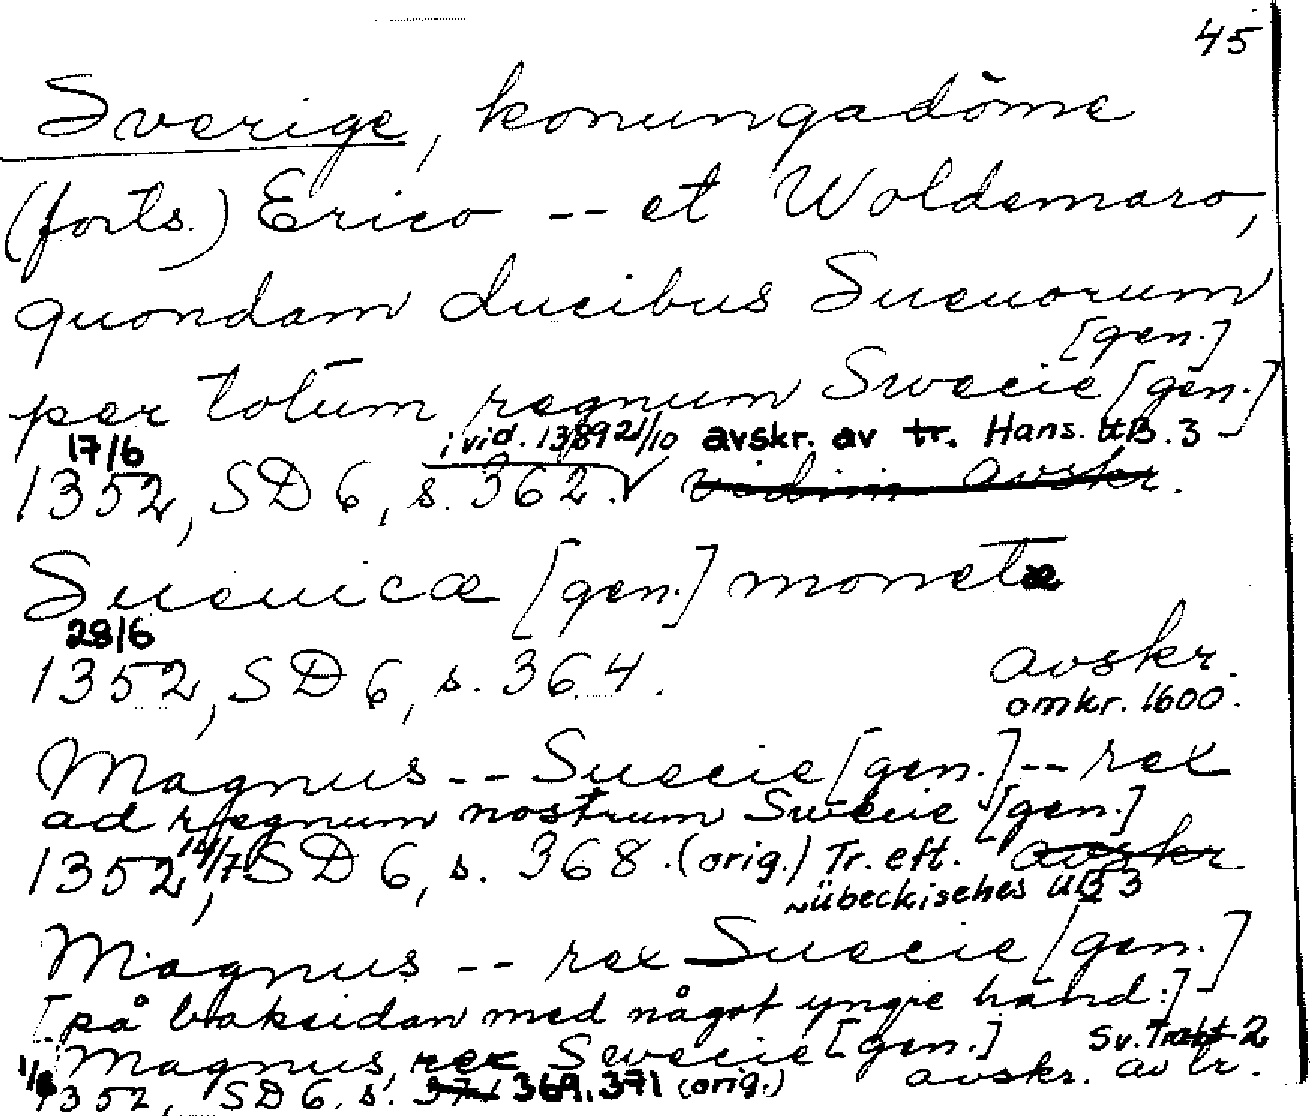 45
Sverige, konungadöme
(forts.) Erico -- et Woldemaro,
quondam ducibus Sueuorum
[gen.]
per totum regnum Swecie [gen.]
17/6 i vid. 1389 21/10 avskr. av tr. Hans. UB. 3
1352, SD 6, s. 362. vidim. avskr.
Sueuica [gen.] moneta
28/6
1352, SD 6, s. 364. avskr.
omkr. 1600.
Magnus -- Suecie [gen.] -- rex
ad regnum nostrum Swecie [gen.]
1352 14/7, SD 6, s. 368. (orig.) Tr. eft. avskr
Lübeckisches UB 3
Magnus -- rex Suecie [gen.]
[på baksidan med något yngre hand:]
Magnus, rex Swecie [gen.] Sv. Trakt 2
1352, SD 6, s. 371 369, 371 (orig.) avskr. av tr.